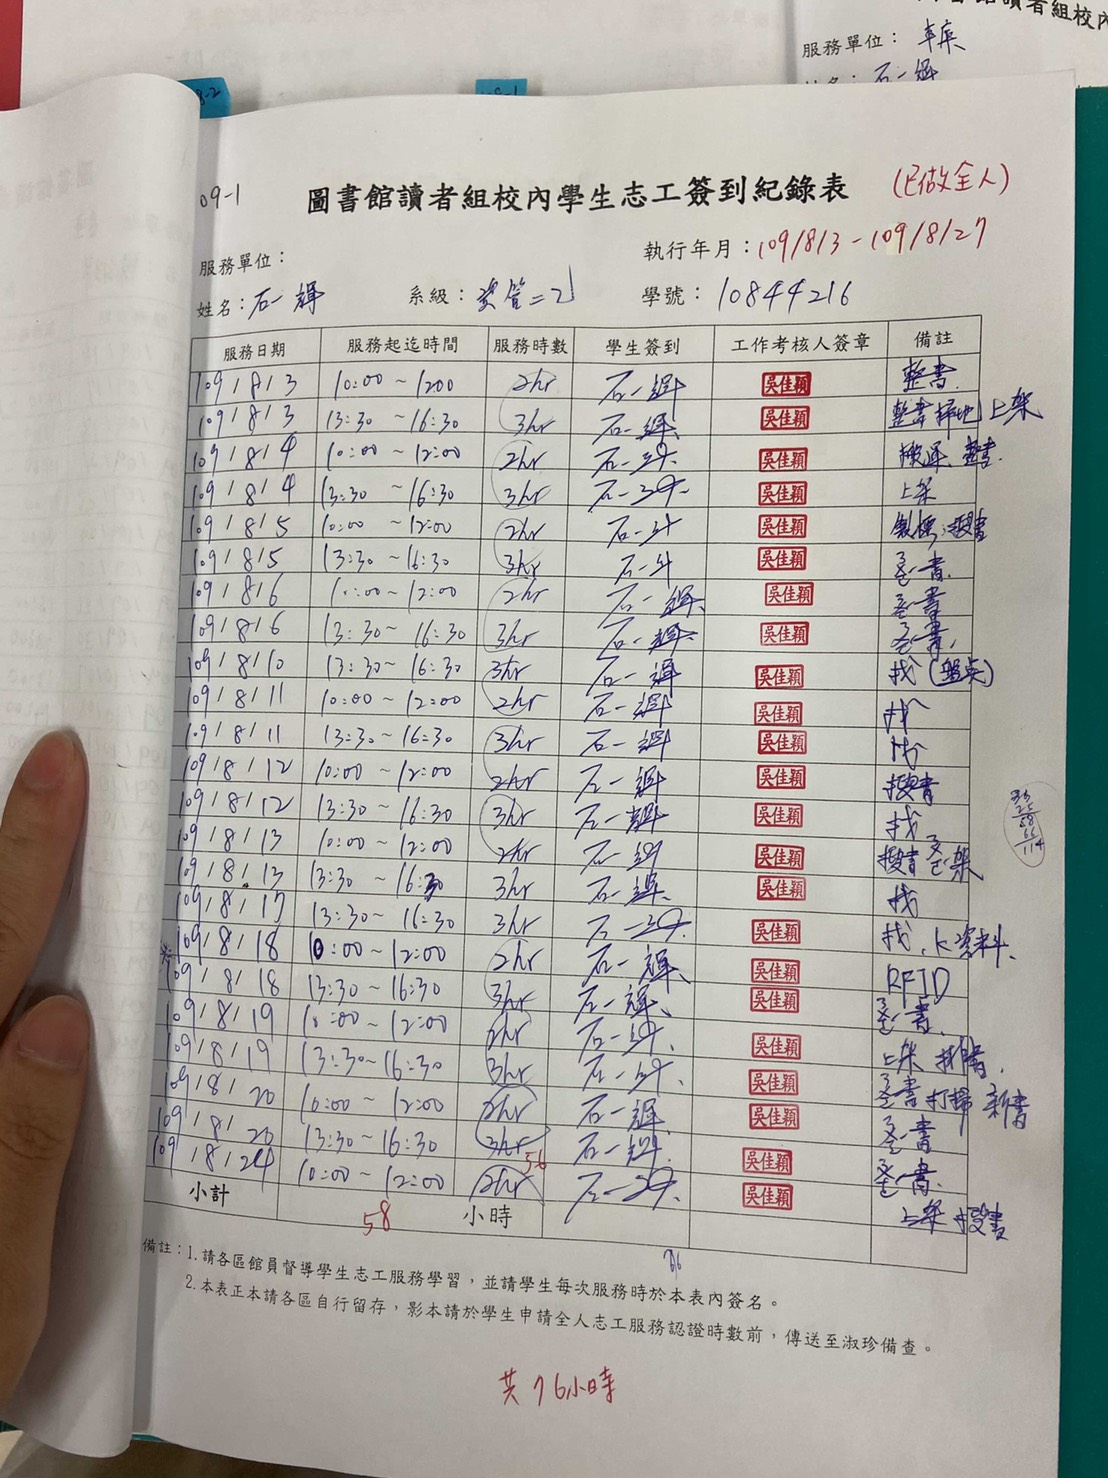 服務單位：
石一
09-1
圖書館讀者組校內學生志工簽到紀錄表 (已做全人)
服務單位： 執行年月：109/8/3-109/8/27
姓名：石一輝 系級：資管二乙 學號：10844216
服務日期 服務起迄時間 服務時數 學生簽到 工作考核人簽章 備註
109/8/3 10:00~1200 2hr 石一輝 吳佳穎 整書
109/8/3 13:30~16:30 3hr 石一輝 吳佳穎 整書 掃地 上架
109/8/4 10:00~12:00 2hr 石一 吳佳穎 整書
109/8/4 13:30~16:30 3hr 石一 吳佳穎 上架
109/8/5 10:00~12:00 2hr 石一 吳佳穎
109/8/5 13:30~16:30 3hr 石一 吳佳穎 整書
109/8/6 10:00~12:00 2hr 石一輝 吳佳穎 整書
109/8/6 13:30~16:30 3hr 石一輝 吳佳穎 整書
109/8/10 13:30~16:30 3hr 石一輝 吳佳穎 找(盤點)
109/8/11 10:00~12:00 2hr 石一輝 吳佳穎 找
109/8/11 13:30~16:30 3hr 石一輝 吳佳穎 找
109/8/12 10:00~12:00 2hr 石一輝 吳佳穎 搬書
109/8/12 13:30~16:30 3hr 石一輝 吳佳穎 找
109/8/13 10:00~12:00 2hr 石一 吳佳穎 搬書 整架
109/8/13 13:30~16:30 3hr 石一輝 吳佳穎 找
109/8/17 13:30~16:30 3hr 石一 吳佳穎 找、k資料
109/8/18 10:00~12:00 2hr 石一輝 吳佳穎 RFID
109/8/18 13:30~16:30 3hr 石一輝 吳佳穎 整書
109/8/19 10:00~12:00 2hr 石一 吳佳穎 上架
109/8/19 13:30~16:30 3hr 石一 吳佳穎 整書 打掃 新書
109/8/20 10:00~12:00 2hr 石一輝 吳佳穎 整書
109/8/20 13:30~16:30 3hr 石一輝 吳佳穎 整書
109/8/24 10:00~12:00 2hr 石一 吳佳穎 上架 搬書
56
小計 58 小時
備註：1.請各區館員督導學生志工服務學習，並請學生每次服務時於本表內簽名。
2.本表正本請各區自行留存，影本請於學生申請全人志工服務認證時數前，傳送至淑珍備查。
共76小時